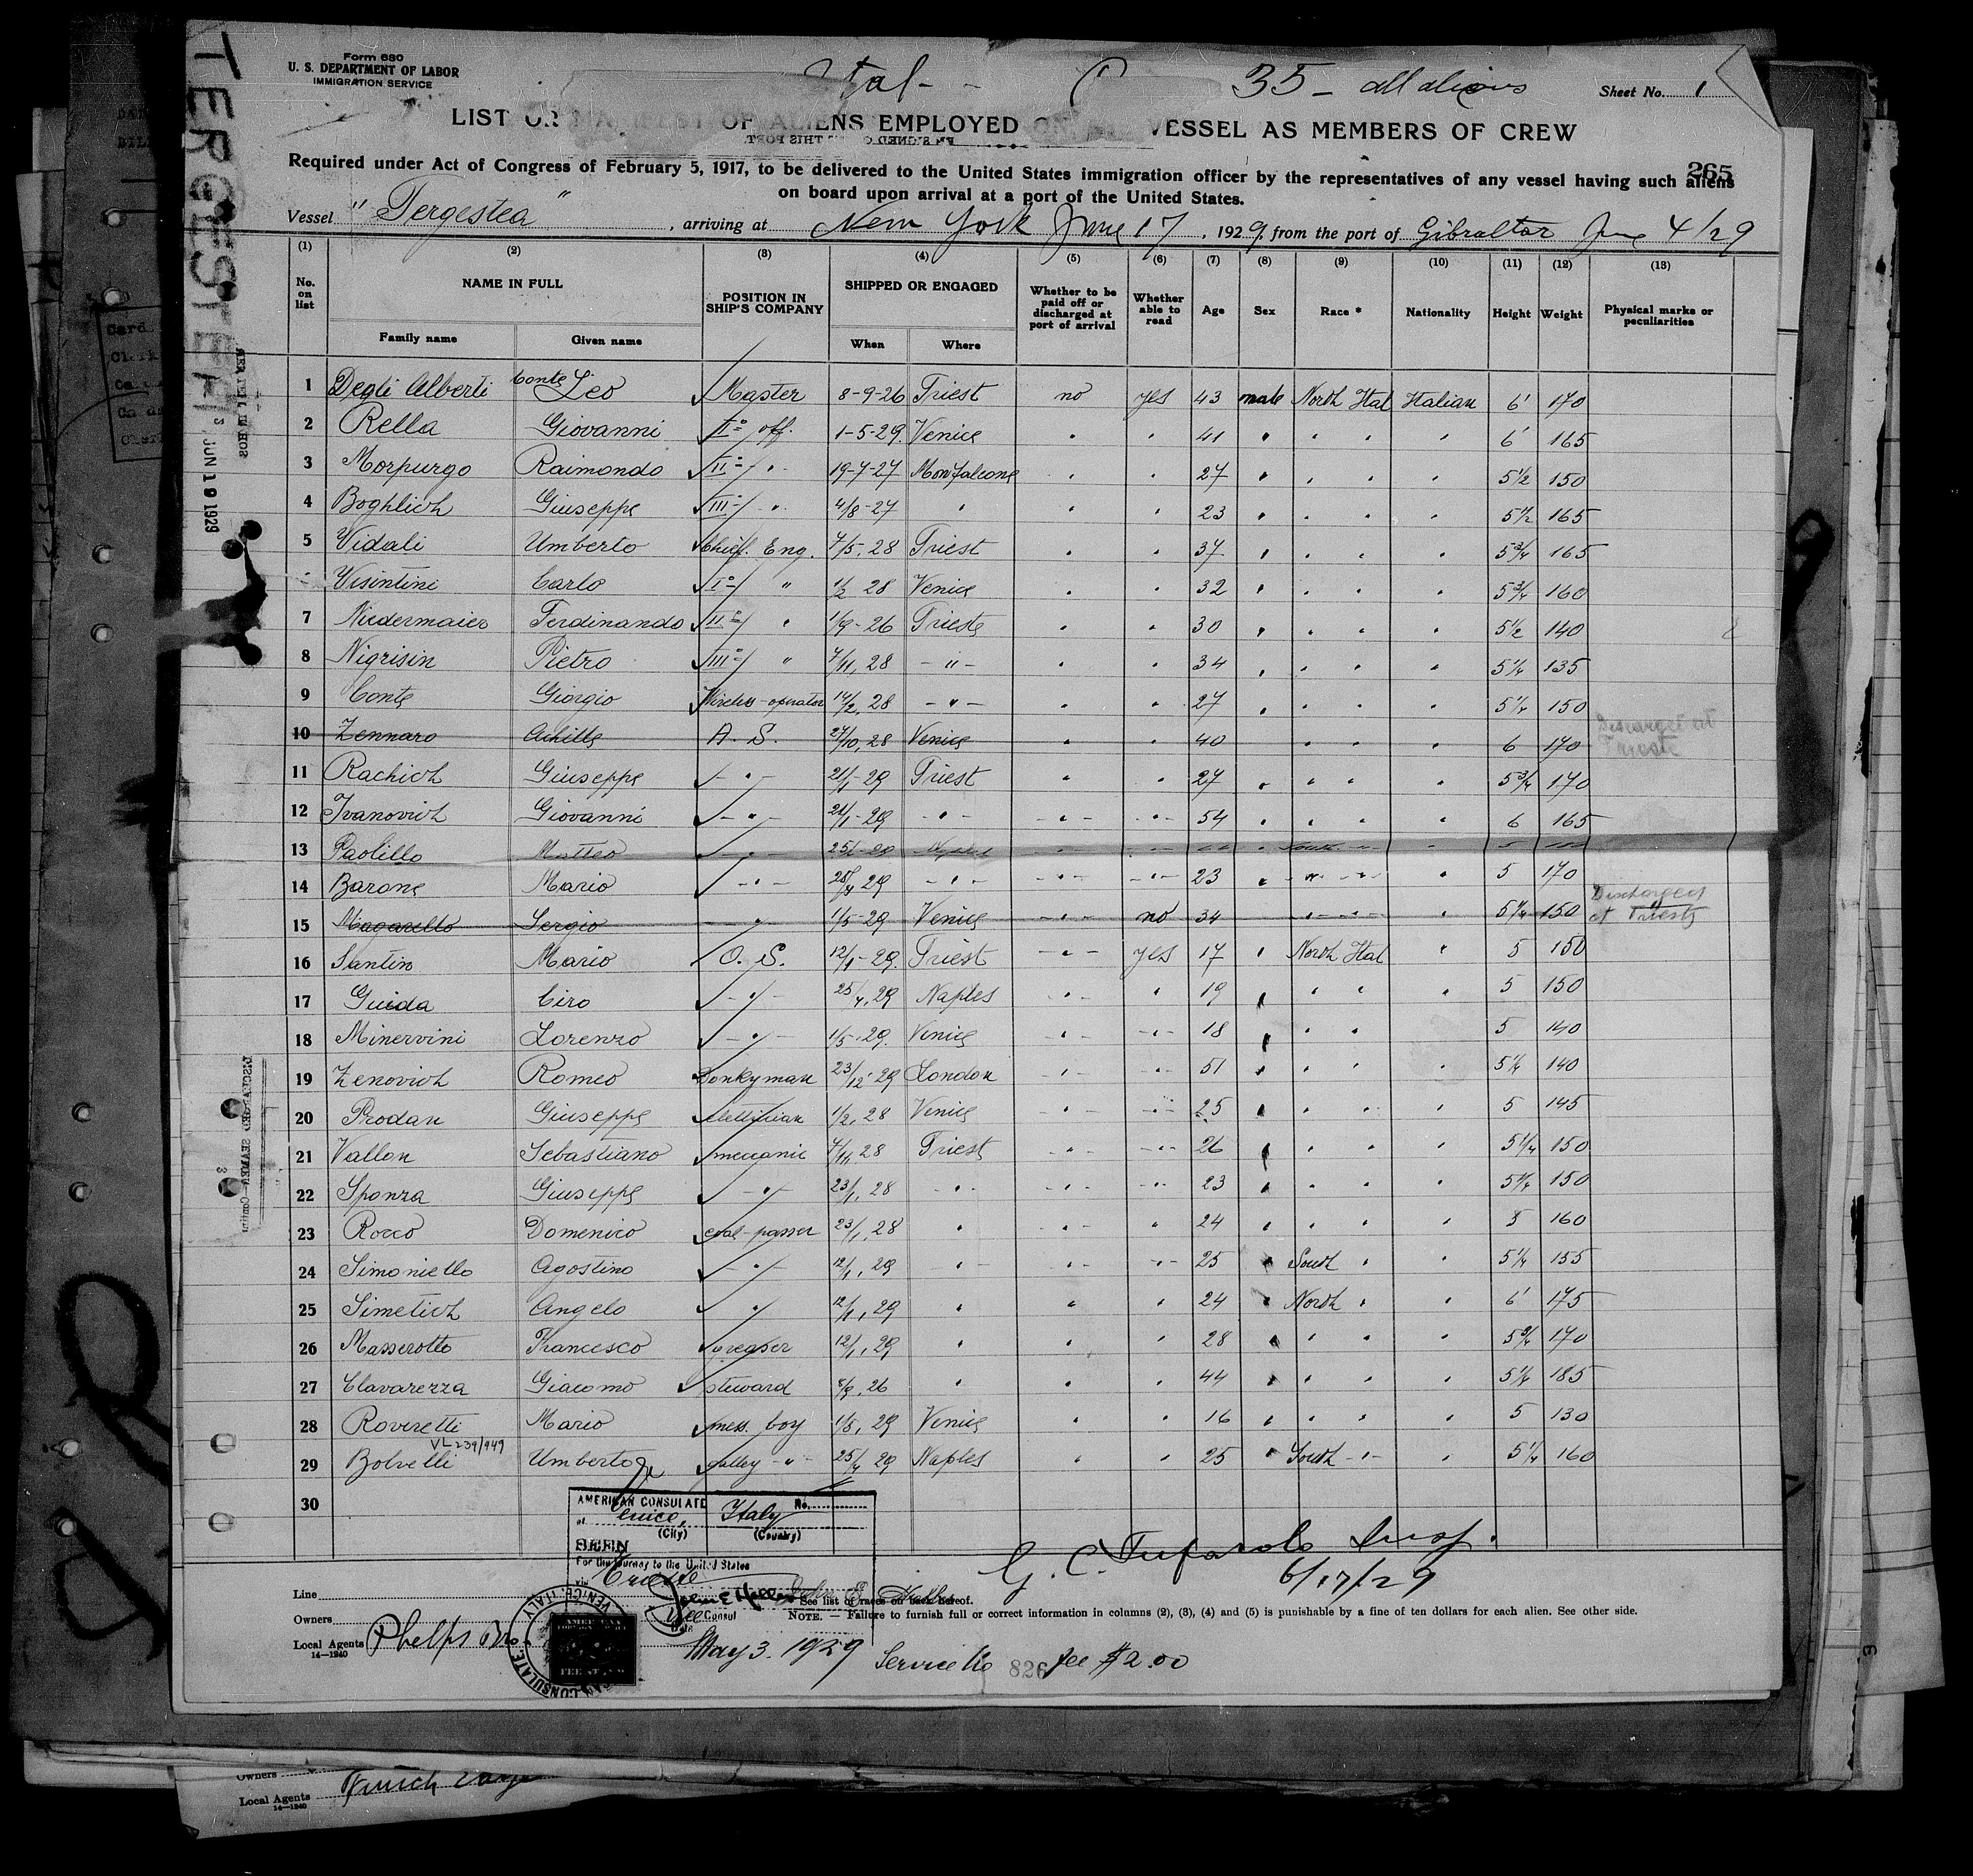 Form 680
U. S. DEPARTMENT OF LABOR
IMMIGRATION SERVICE
Ital - 35 - all aliens
Sheet No. 1
LIST OR OF ALIENS EMPLOYED ON VESSEL AS MEMBERS OF CREW
265
Required under Act of Congress of February 5, 1917, to be delivered to the United States immigration officer by the representatives of any vessel having such aliens
on board upon arrival at a port of the United States.
Vessel "Tergestea", arriving at New York June 17, 1929, from the port of Gibraltar June 4/29
(1) (2) (3) (4) (5) (6) (7) (8) (9) (10) (11) (12) (13)
No. on list NAME IN FULL Family name Given name POSITION IN SHIP'S COMPANY SHIPPED OR ENGAGED When Where Whether to be paid off or discharged at port of arrival Whether able to read Age Sex Race * Nationality Height Weight Physical marks or peculiarities
1 Degli Alberti Conte Leo Master 8-9-26 Triest no yes 43 male North Ital Italian 6' 170
2 Rella Giovanni I° off. 1-5-29 Venice " " 41 " " " " 6' 165
3 Morpurgo Raimondo II° " 19-7-27 Monfalcone " " 27 " " " " 5½ 150
4 Boghlich Giuseppe III° " 4/8-27 " " " 23 " " " " 5½ 165
5 Vidali Umberto Chief. Eng. 7/5, 28 Triest " " 37 " " " " 5¾ 165
Visintini Carlo I° " 1/2 28 Venice " " 32 " " " " 5¾ 160
7 Niedermaier Ferdinando II° " 1/9-26 Trieste " " 30 " " " " 5½ 140
8 Nigrisin Pietro III° " 7/11, 28 - " - " " 34 " " " " 5¼ 135
9 Conte Giorgio Wireless-operator 14/2, 28 - " - " " 27 " " " " 5¼ 150
10 Zennaro Achille A. S. 27/10, 28 Venice " " 40 " " " 6 170 Discharged at Trieste
11 Rachich Giuseppe - " - 21/1-29 Triest " " 27 " " " " 5¾ 170
12 Ivanovich Giovanni - " - 21/1-29 - " - - " - - " - 54 " " " " 6 165
13 Paolillo Matteo
14 Barone Mario - " - 25/4 29 - " - - " - - " - 23 " - " - - " - " 5 170
15 Magarello Sergio " 1/5-29 Venice - " - no 34 - " - " - " 5¼ 150 Discharged at Trieste
16 Santin Mario O. S. 12/1-29. Triest - " - yes 17 " North Ital " 5 150
17 Guida Ciro - " - 25/4, 29 Naples - " - " 19 " " " " 5 150
18 Minervini Lorenzo - " - 1/5-29. Venice - " - - " - 18 " " " 5 140
19 Zenovich Romeo Donkyman 23/12-29 London - " - - " - 51 " " " " 5¼ 140
20 Prodan Giuseppe 1/2, 28 Venice - " - - " - 25 " " " " 5 145
21 Vallon Sebastiano meccanic 7/11 28 Triest - " - - " - 26 " " " " 5¼ 150
22 Sponza Giuseppe - " - 23/1, 28 - " - - " - - " - 23 " " " " 5¼ 150
23 Rocco Domenico coal-passer 23/1, 28 " - " - " 24 " " " " 5 160
24 Simoniello Agostino - " - 12/1, 29 - " - - " - - " - 25 " South " " 5¼ 155
25 Simetich Angelo " 12/1, 29 " " " 24 " North " " 6' 175
26 Masserotto Francesco greaser 12/1, 29 " " " 28 " " " " 5¾ 170
27 Clavarezza Giacomo steward 8/9, 26 " " " 44 " " " " 5¼ 185
28 Roveretti Mario mess. boy 1/5, 29 Venice " " 16 " " " " 5 130
VL 239/949
29 Bolvelli Umberto galley - " - 25/4 29 Naples " " 25 " South - " - " 5¼ 160
30
AMERICAN CONSULATE No.
at Venice, Italy
(City) (Country)
SEEN
For the journey to the United States
via Trieste
G. C. Tufarolo Insp.
6/17/29
Line
See list of races on back hereof.
Owners
Consul
NOTE. — Failure to furnish full or correct information in columns (2), (3), (4) and (5) is punishable by a fine of ten dollars for each alien. See other side.
Local Agents Phelps Bro
14—1240
May 3. 1929
Service No 826 fee $2.00
TERGESTEA
JUN 19 1929
Owners
Local Agents
14—1240